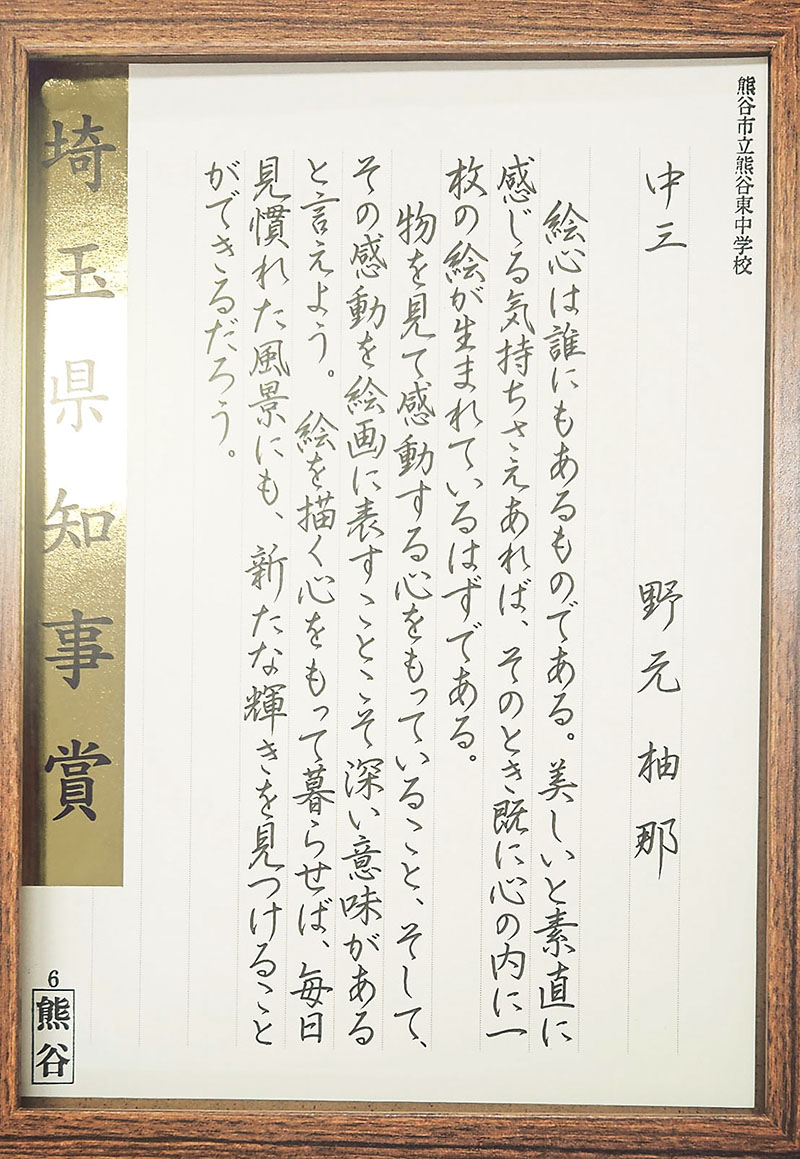 熊谷市立熊谷東中学校
中三　野元　柚那
絵心は誰にもあるものである。美しいと素直に
感じる気持ちさえあれば、そのとき既に心の内に一
枚の絵が生まれているはずである。
物を見て感動する心をもっていること、そして、
その感動を絵画に表すことこそ深い意味がある
と言えよう。絵を描く心をもって暮らせば、毎日
見慣れた風景にも、新たな輝きを見つけること
ができるだろう。
埼玉県知事賞
6
熊谷